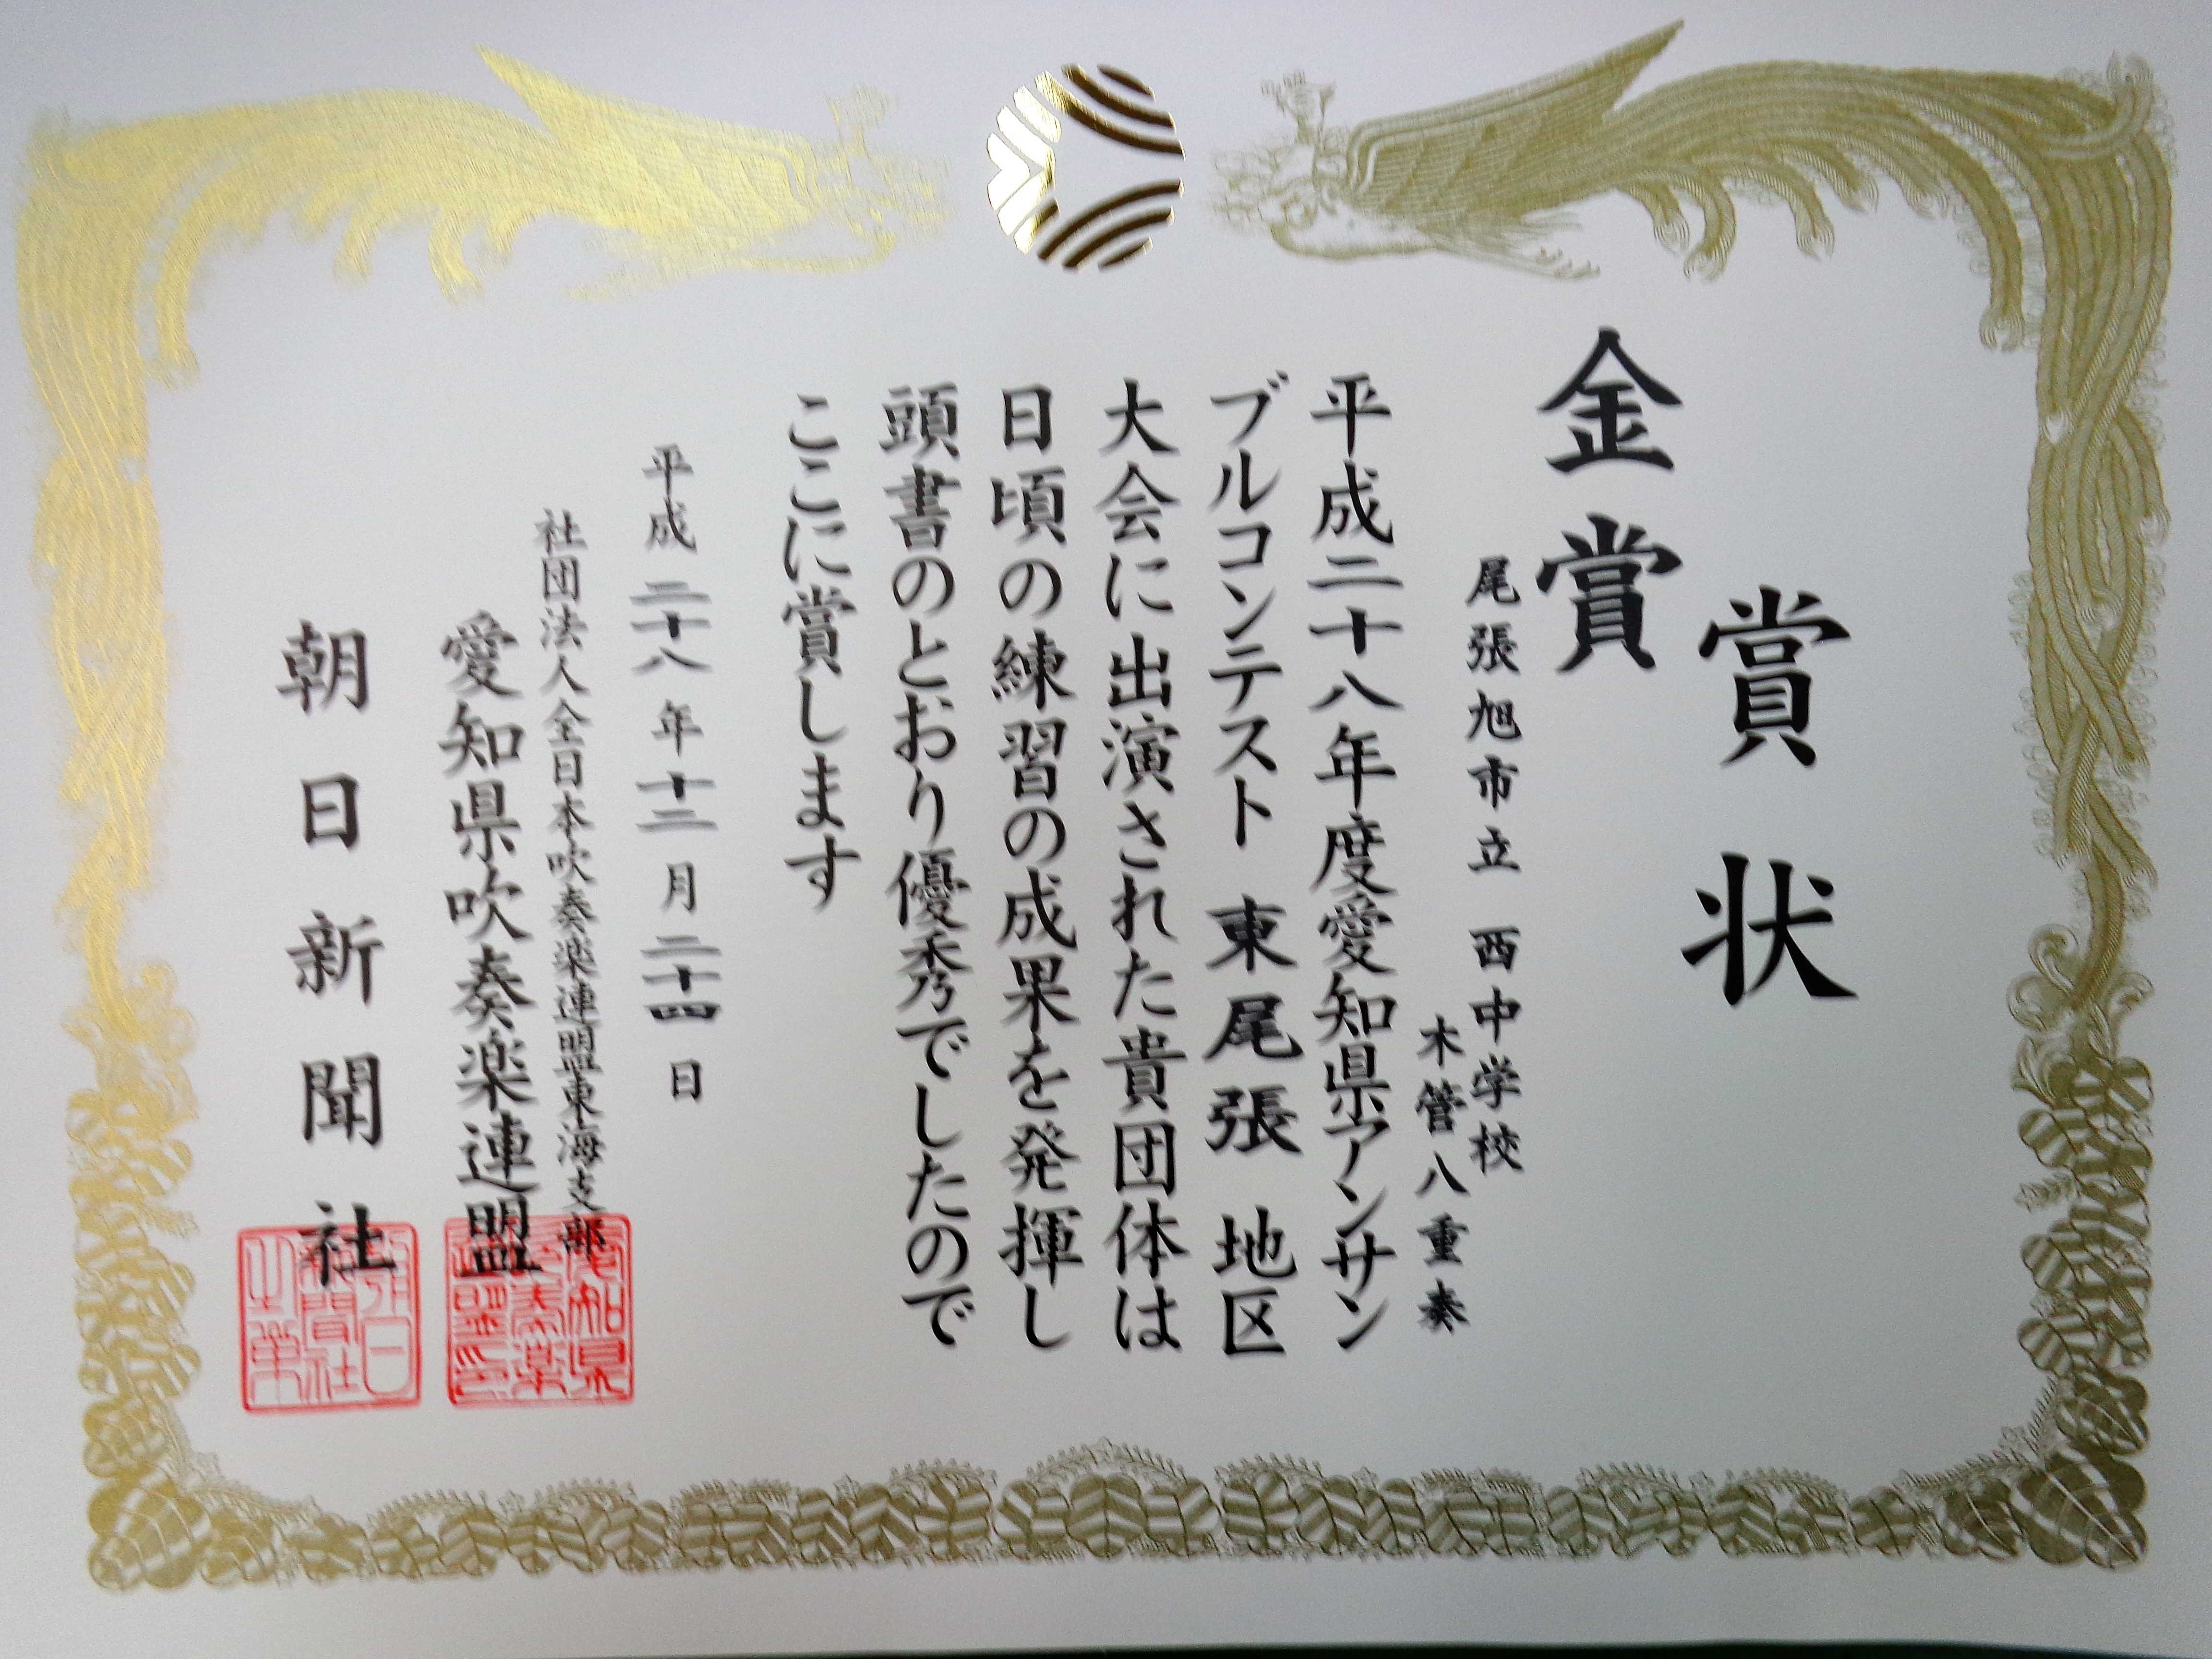 賞状
金賞
尾張旭市立 西中学校
木管八重奏
平成二十八年度愛知県アンサン
ブルコンテスト 東尾張 地区
大会に出演された貴団体は
日頃の練習の成果を発揮し
頭書のとおり優秀でしたので
ここに賞します
平成二十八年十二月二十四日
社団法人全日本吹奏楽連盟東海支部
愛知県吹奏楽連盟
朝日新聞社